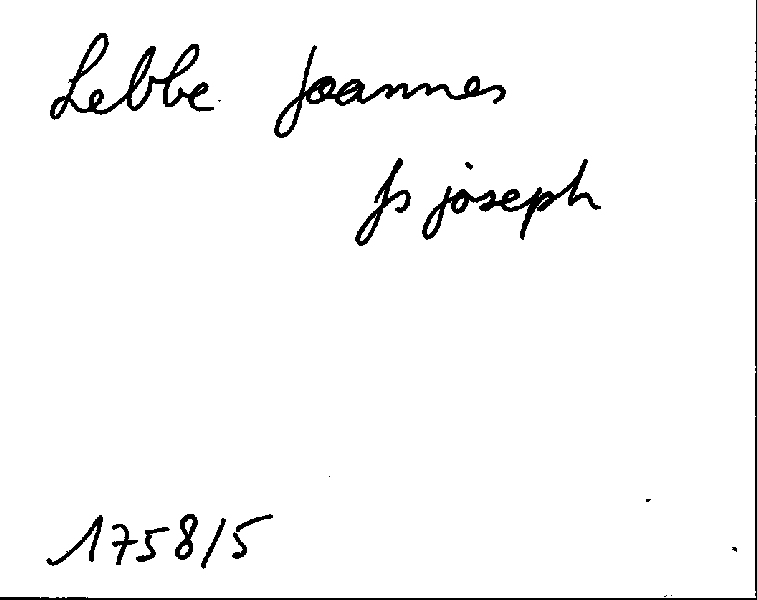 Lebbe Joannes
fs joseph
1758/5